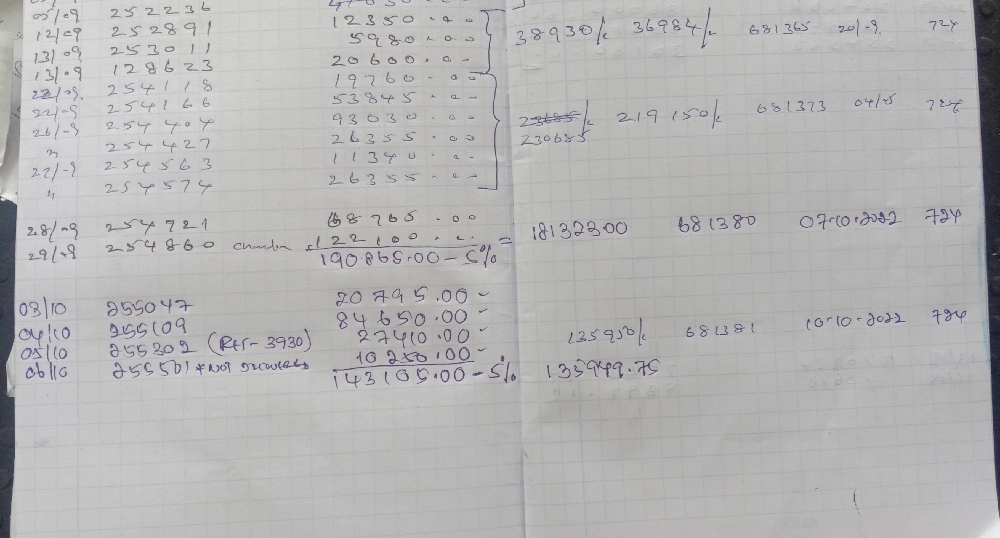 05/09 252236
12/09 252891 12350.00
13/09 253011 5980.00 38930/- 36984/- 681365 20/-9. 724
13/.9 128623 20600.00
22/09. 254118 19760.00
22/-9 254166 53845.00 23685/- 219150/- 681373 04/10 724
26/-9 254404 93030.00 230685
" 254427 26355.00
27/-9 254563 11340.00
" 254574 26355.00
28/-9 254721 68765.00
29/-9 254860 122100.00 = 18132300 681380 07-10-2022 724
190865.00-5%
03/10 255047 20795.00-
04/10 255109 84650.00-
05/10 255302 (Rtn-3930) 27410.00- 135950/- 681381 10-10-2022 724
06/10 255501 * Not 10250.00-
143105.00-5% 135949.75